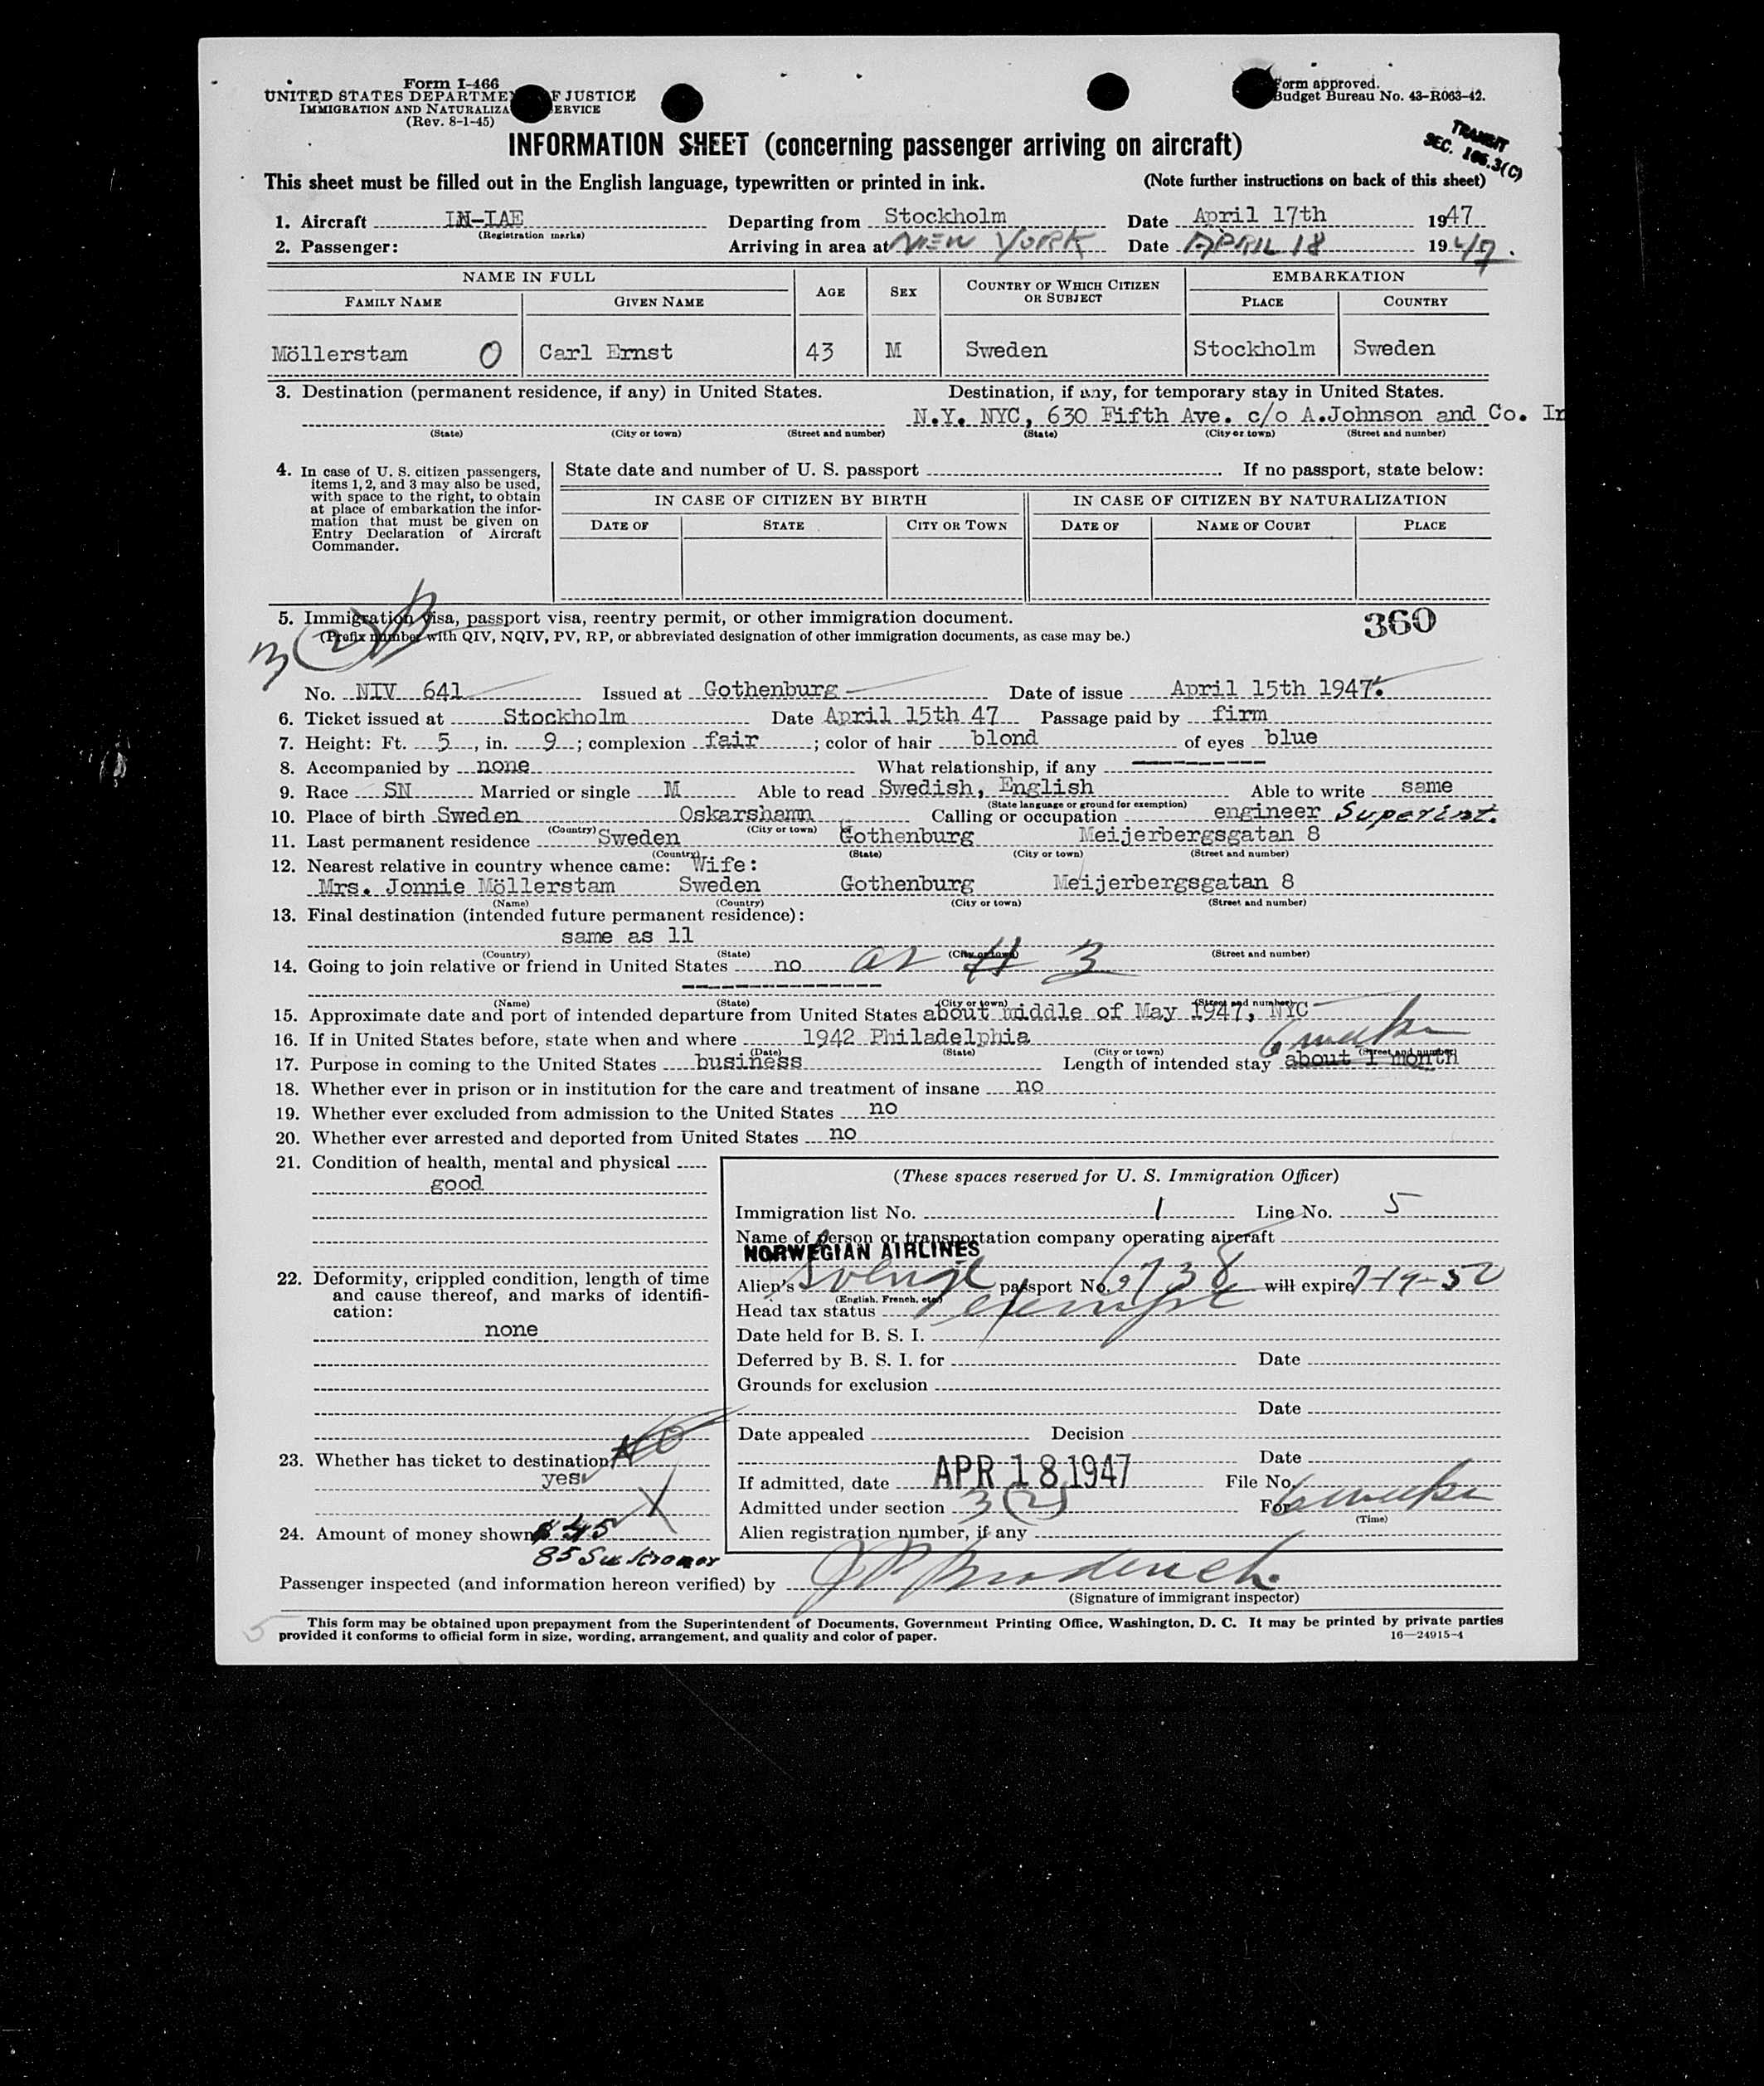 Form I-466
UNITED STATES DEPARTME F JUSTICE
IMMIGRATION AND NATURALIZA ERVICE
(Rev. 8-1-45)
Form approved.
Budget Bureau No. 43-R063-42.
INFORMATION SHEET (concerning passenger arriving on aircraft)
TRANSIT
SEC. 105.3(C)
This sheet must be filled out in the English language, typewritten or printed in ink. (Note further instructions on back of this sheet)
1. Aircraft LN-IAE Departing from Stockholm Date April 17th 1947
(Registration marks)
2. Passenger: Arriving in area at NEW YORK Date APRIL 18 1947.
NAME IN FULL AGE SEX COUNTRY OF WHICH CITIZEN OR SUBJECT EMBARKATION
FAMILY NAME GIVEN NAME PLACE COUNTRY
Möllerstam O Carl Ernst 43 M Sweden Stockholm Sweden
3. Destination (permanent residence, if any) in United States. Destination, if any, for temporary stay in United States.
N.Y. NYC, 630 Fifth Ave. c/o A.Johnson and Co. In
(State) (City or town) (Street and number) (State) (City or town) (Street and number)
4. In case of U. S. citizen passengers, items 1, 2, and 3 may also be used, with space to the right, to obtain at place of embarkation the information that must be given on Entry Declaration of Aircraft Commander.
State date and number of U. S. passport If no passport, state below:
IN CASE OF CITIZEN BY BIRTH IN CASE OF CITIZEN BY NATURALIZATION
DATE OF STATE CITY OR TOWN DATE OF NAME OF COURT PLACE
5. Immigration visa, passport visa, reentry permit, or other immigration document. 360
(Prefix number with QIV, NQIV, PV, RP, or abbreviated designation of other immigration documents, as case may be.)
3(2)
No. NIV 641 Issued at Gothenburg Date of issue April 15th 1947.
6. Ticket issued at Stockholm Date April 15th 47 Passage paid by firm
7. Height: Ft. 5, in. 9; complexion fair; color of hair blond of eyes blue
8. Accompanied by none What relationship, if any
9. Race SN Married or single M Able to read Swedish, English Able to write same
(State language or ground for exemption)
10. Place of birth Sweden Oskarshamn Calling or occupation engineer Superint.
(Country) (City or town)
11. Last permanent residence Sweden Gothenburg Meijerbergsgatan 8
(Country) (State) (City or town) (Street and number)
12. Nearest relative in country whence came: Wife:
Mrs. Jonnie Möllerstam Sweden Gothenburg Meijerbergsgatan 8
(Name) (Country) (City or town) (Street and number)
13. Final destination (intended future permanent residence):
same as 11
(Country) (State) (City or town) (Street and number)
14. Going to join relative or friend in United States no as # 3
(Name) (State) (City or town) (Street and number)
15. Approximate date and port of intended departure from United States about middle of May 1947, NYC
16. If in United States before, state when and where 1942 Philadelphia
(Date) (State) (City or town) (Street and number)
6 weeks
17. Purpose in coming to the United States business Length of intended stay about 1 month
18. Whether ever in prison or in institution for the care and treatment of insane no
19. Whether ever excluded from admission to the United States no
20. Whether ever arrested and deported from United States no
21. Condition of health, mental and physical
good
22. Deformity, crippled condition, length of time and cause thereof, and marks of identification:
none
23. Whether has ticket to destination NO
yes
24. Amount of money shown $45
85 Sw Kronor
(These spaces reserved for U. S. Immigration Officer)
Immigration list No. 1 Line No. 5
Name of person or transportation company operating aircraft
NORWEGIAN AIRLINES
Alien's passport No. 6738 will expire 7-19-50
(English, French, etc.)
Head tax status exempt
Date held for B. S. I.
Deferred by B. S. I. for Date
Grounds for exclusion
Date
Date appealed Decision
Date
If admitted, date APR 18 1947 File No.
Admitted under section 3(2) For 6 weeks
(Time)
Alien registration number, if any
Passenger inspected (and information hereon verified) by
(Signature of immigrant inspector)
5
This form may be obtained upon prepayment from the Superintendent of Documents, Government Printing Office, Washington, D. C. It may be printed by private parties
provided it conforms to official form in size, wording, arrangement, and quality and color of paper. 16—24915-4